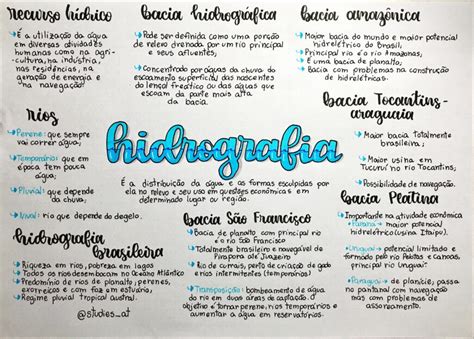 recurso hídrico
É a utilização da água
em diversas atividades
humanas como na agri-
cultura, na indústria,
nas residências, na
geração de energia e
na navegação!
bacia hidrográfica
Pode ser definida como uma porção
de relevo drenada por um rio principal
e seus afluentes;
Concentrado por águas da chuva do
escoamento superficial das nascentes
do lençol freático ou das águas que
escoam da parte mais alta
da bacia.
bacia amazônica
Maior bacia do mundo e maior potencial
hidrelétrico do Brasil;
Principal rio é o rio Amazonas,
É uma bacia de planalto;
Bacia com problemas na construção
de hidrelétricas.
rios
Perene: que sempre
vai correr água;
Temporário: que em
época tem pouca
água;
Pluvial: que depende
da chuva;
Nival: rio que depende do degelo.
hidrografia
É a distribuição da água e as formas esculpidas por
ela no relevo e seu uso em questões econômicas em
determinado lugar ou região.
bacia Tocantins-
araguaia
Maior bacia totalmente
brasileira;
Maior usina em
Tucuruí no rio Tocantins;
Possibilidade de navegação.
hidrografia
brasileira
Riqueza em rios, pobreza em lago
Todos os rios desembocam no Oceano Atlântico
Predomínio de rios de planalto; perenes,
exorreicos e com foz em estuário;
Regime pluvial tropical austral.
@studies_at
bacia São Francisco
Bacia de planalto com principal rio
é o rio São Francisco
Totalmente brasileiro e navegável de
Pirapora até Juazeiro
Rio dos currais, com criação de gado
e rios intermitentes (temporário)
Transposição: bombeamento de água
do rio em duas áreas de captação. O
objetivo era tornar rios temporários e
aumentar a água em reservatórios.
bacia Platina
Importante na atividade econômica
Paraná → maior potencial
hidrelétrico (usina Itaipu).
Uruguai → potencial limitado e
formado pelo rio Pelotas e Canoas,
principal rio Uruguai.
Paraguai → de planície, passa
no pantanal e navegável
mas com problemas de
assoreamento.